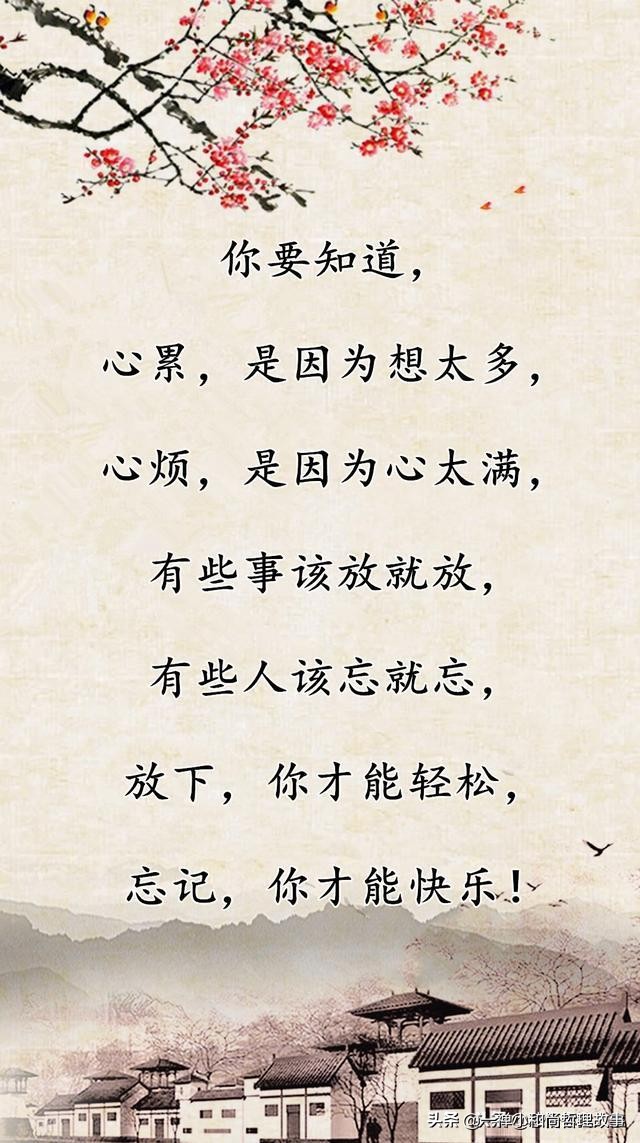 你要知道，
心累，是因为想太多，
心烦，是因为心太满，
有些事该放就放，
有些人该忘就忘，
放下，你才能轻松，
忘记，你才能快乐！
头条 @一禅小和尚哲理故事